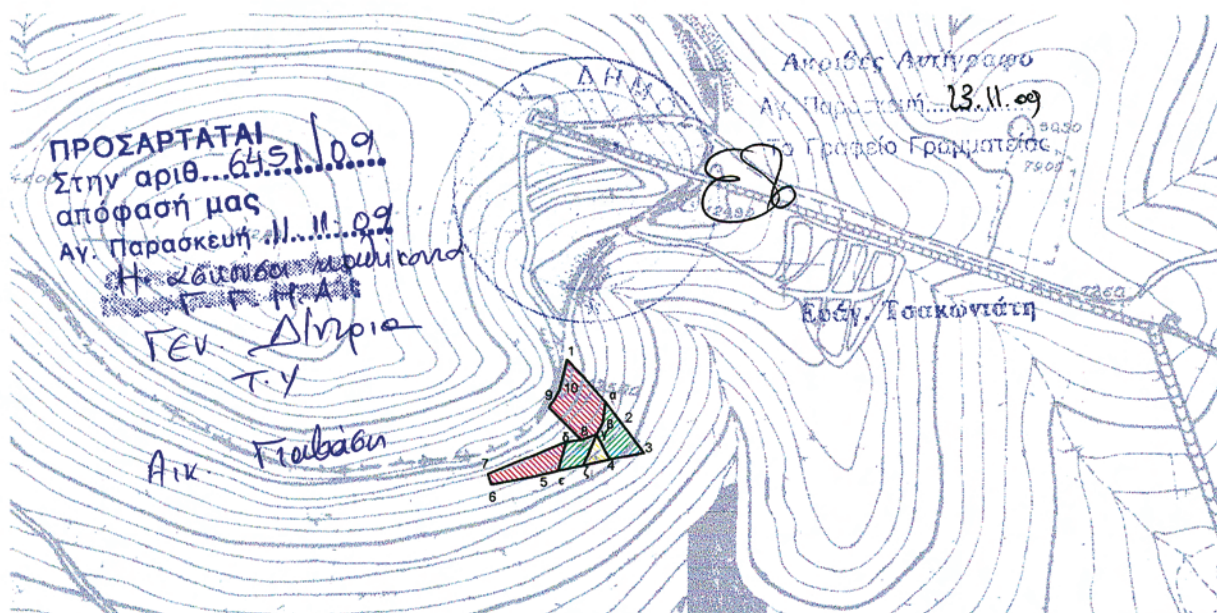 ΠΡΟΣΑΡΤΑΤΑΙ
Στην αριθ...6451/09
απόφασή μας
Αγ. Παρασκευή .11.11.09
Γ Γ Η Α
Γεν. Δ/ντρια
Τ.Υ
Αικ. Γιαβάση
ΔΗΜΟ
Ακριβές Αντίγραφο
Αγ. Παρασκευή....23.11.09
Το Γραφείο Γραμματείας
Ευάγ. Τσακωνιάτη
5050
7900
12490
2260
1
10
9
α
2
β
8
γ
3
δ
4
ζ
7
5
ε
6